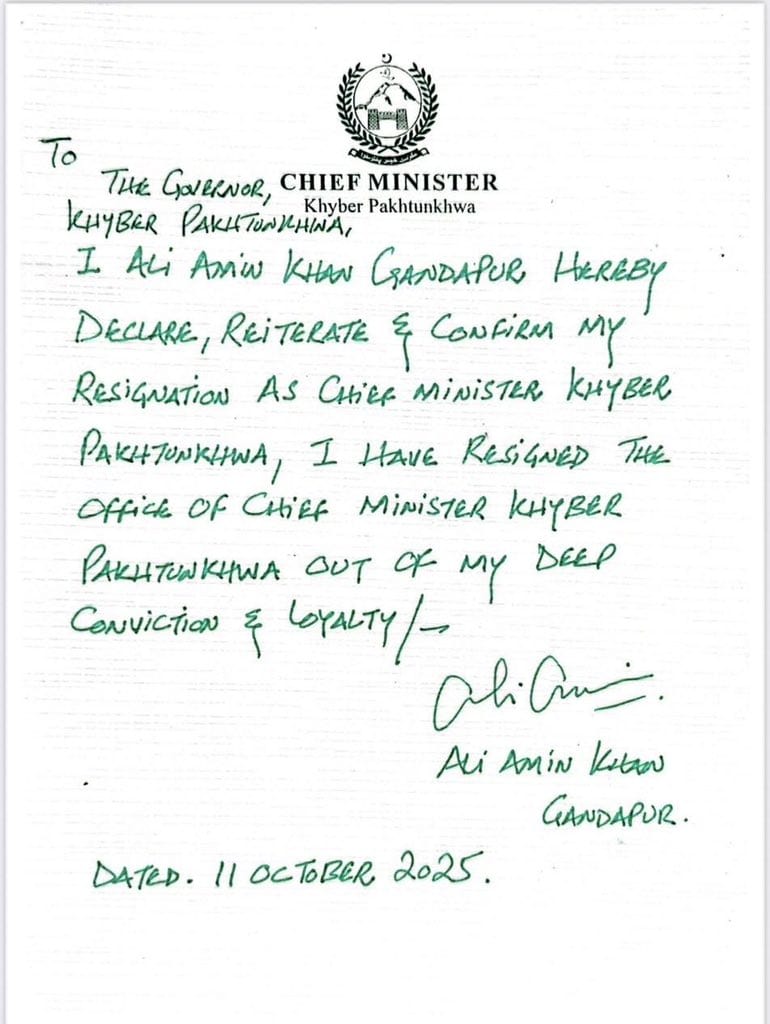 To
THE GOVERNOR,
CHIEF MINISTER
Khyber Pakhtunkhwa
KHYBER PAKHTUNKHWA,
I ALI AMIN KHAN GANDAPUR HEREBY
DECLARE, REITERATE & CONFIRM MY
RESIGNATION AS CHIEF MINISTER KHYBER
PAKHTUNKHWA, I HAVE RESIGNED THE
OFFICE OF CHIEF MINISTER KHYBER
PAKHTUNKHWA OUT OF MY DEEP
CONVICTION & LOYALTY/-
Ali Amin
ALI AMIN KHAN
GANDAPUR.
DATED. 11 OCTOBER 2025.